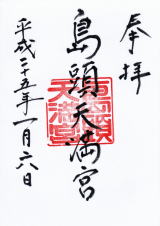 奉拝
島頭天満宮
平成二十五年一月六日